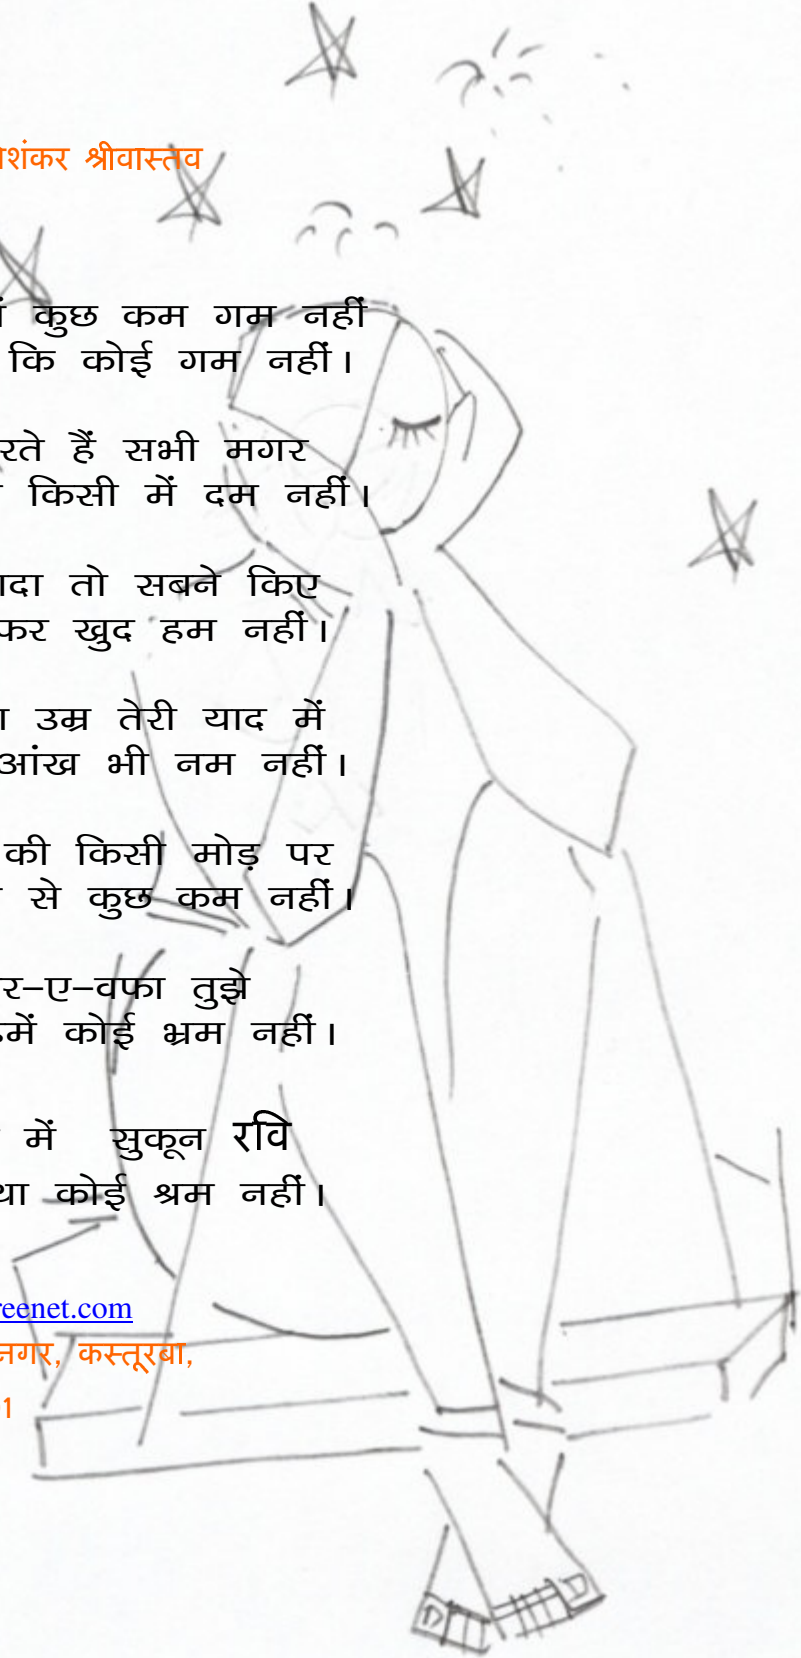 श्रीवास्तव
कुछ कम गम नहीं
कि कोई गम नहीं।
हैं सभी मगर
किसी में दम नहीं।
तो सबने किए
खुद हम नहीं।
उम्र तेरी याद में
आंख भी नम नहीं।
की किसी मोड़ पर
से कुछ कम नहीं।
र–ए–वफा तुझे
कोई भ्रम नहीं।
में सुकून रवि
कोई श्रम नहीं।
reenet.com
नगर, कस्तूरबा,
1